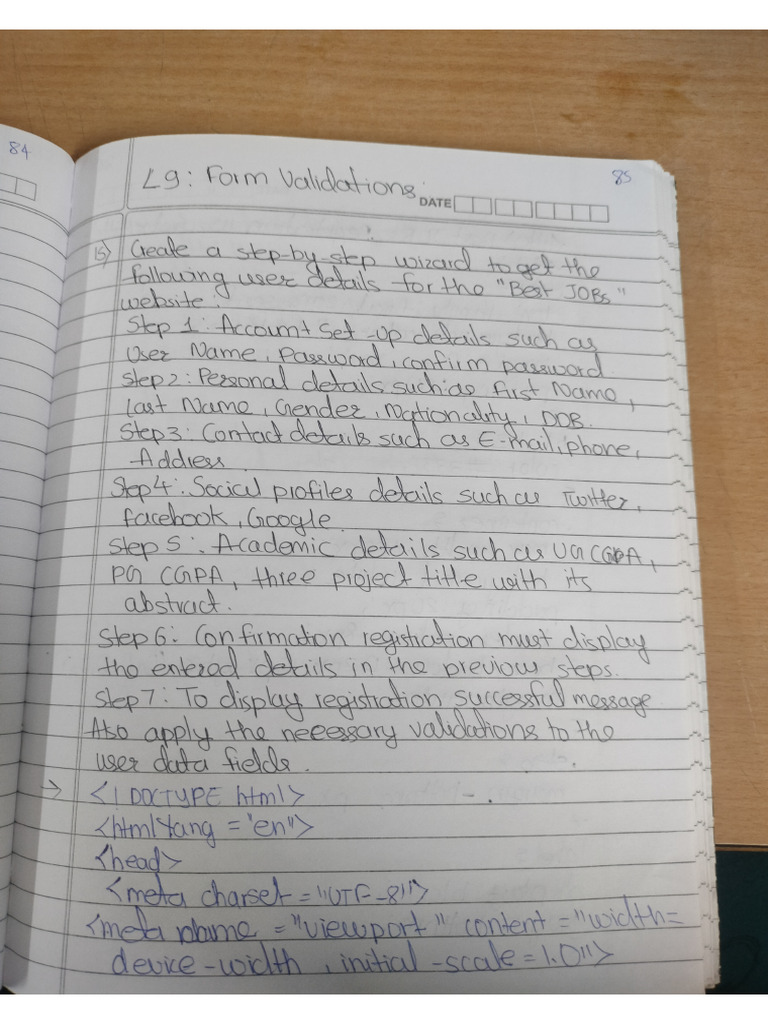 84
L9: Form Validations.
85
DATE
15) Create a step-by-step wizard to get the
following user details for the "Best JOBs"
website:
Step 1: Account Set-up details such as
User Name, Password, confirm password
Step 2: Personal details such as first Name,
Last Name, Gender, Nationality, DOB.
Step 3: Contact details such as E-mail, phone,
Address.
Step 4: Social profiles details such as Twitter,
facebook, Google.
Step 5: Academic details such as UG CGPA,
PG CGPA, three project title with its
abstract.
Step 6: Confirmation registration must display
the entered details in the previous steps.
Step 7: To display registration successful message
Also apply the necessary validations to the
user data fields.
→ <!DOCTYPE html>
<html lang="en">
<head>
<meta charset="UTF-8">
<meta name="viewport" content="width=
device-width, initial-scale=1.0">